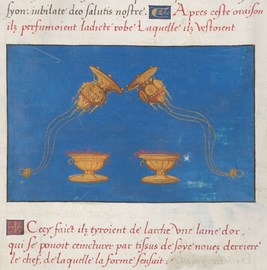 syon: iubilate deo salutis nostre. Apres ceste oraison
ilz perfumoient ladicte robe Laquelle ilz vestoient
Cecy faict ilz tyroient de larche vne lame dor,
qui se pouoit ceincturer par tissus de soye nouez derriere
le chef, de laquelle la forme sensuit.